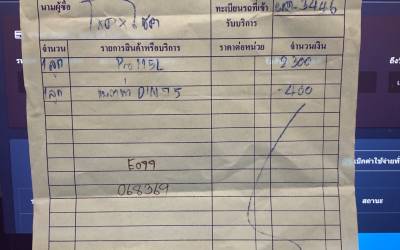 นามผู้ซื้อ
ทะเบียนรถที่เข้า
รับบริการ
3446
จำนวน รายการสินค้าหรือบริการ ราคาต่อหน่วย จำนวนเงิน
1 ลูก Pro 115L 2300
1 ลูก DIN75 -400
E099
068369
เบิกค่าใช้จ่าย
สถานะ